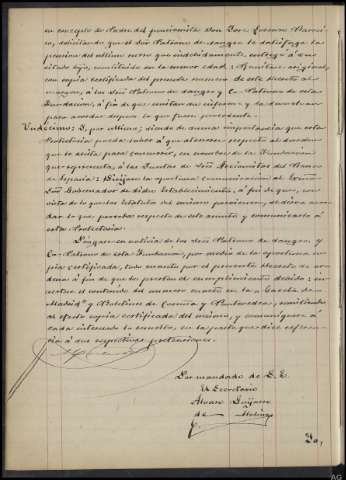 en concepto de Padre del pensionista Don José Guerrero Marrei-
ro, solicitando que el Sor Patrono de sangre le satisfaga la
pension del ultimo curso que indebidamente entregó á su
citado hijo, constituido en la menor edad; Remítase original,
con copia certificada del presente numero de este decreto al
margen, á los Sres Patrono de sangre y Co-Patrono de esta
Fundacion, á fin de que emitan su informe y la devuelvan
para acordar despues lo que fuere procedente.
Undécimo: Y, por ultimo; siendo de suma importancia que esta
Protectoria pueda saber á que atenerse respecto al derecho
que le asista para concurrir, en nombre de la Fundacion
que representa, á las Juntas de Sres Accionistas del Banco
de España: Diríjase la oportuna comunicacion al Excmo
Sor Gobernador de dicho Establecimiento, á fin de que, con
vista de lo que los Estatutos del mismo previenen, se sirva acor-
dar lo que proceda respecto de este asunto y comunicarlo á
esta Protectoria.
Póngase en noticia de los Sres Patrono de sangre y
Co-Patrono de esta Fundacion, por medio de la oportuna co-
pia certificada, todo cuanto por el presente decreto se or-
dena á fin de que presten su cumplimiento debido; in-
sertese el contenido del numero cuarto en la Gaceta de
Madrid y Boletines de Coruña y Pontevedra, remitiendo
al efecto copia certificada del mismo, y comuníquese á
cada interesado lo resuelto, en la parte que dice referen-
cia á sus respectivas pretensiones.
Por mandado de S. E.
El Secretario
Alvaro Guijarro
de
AG